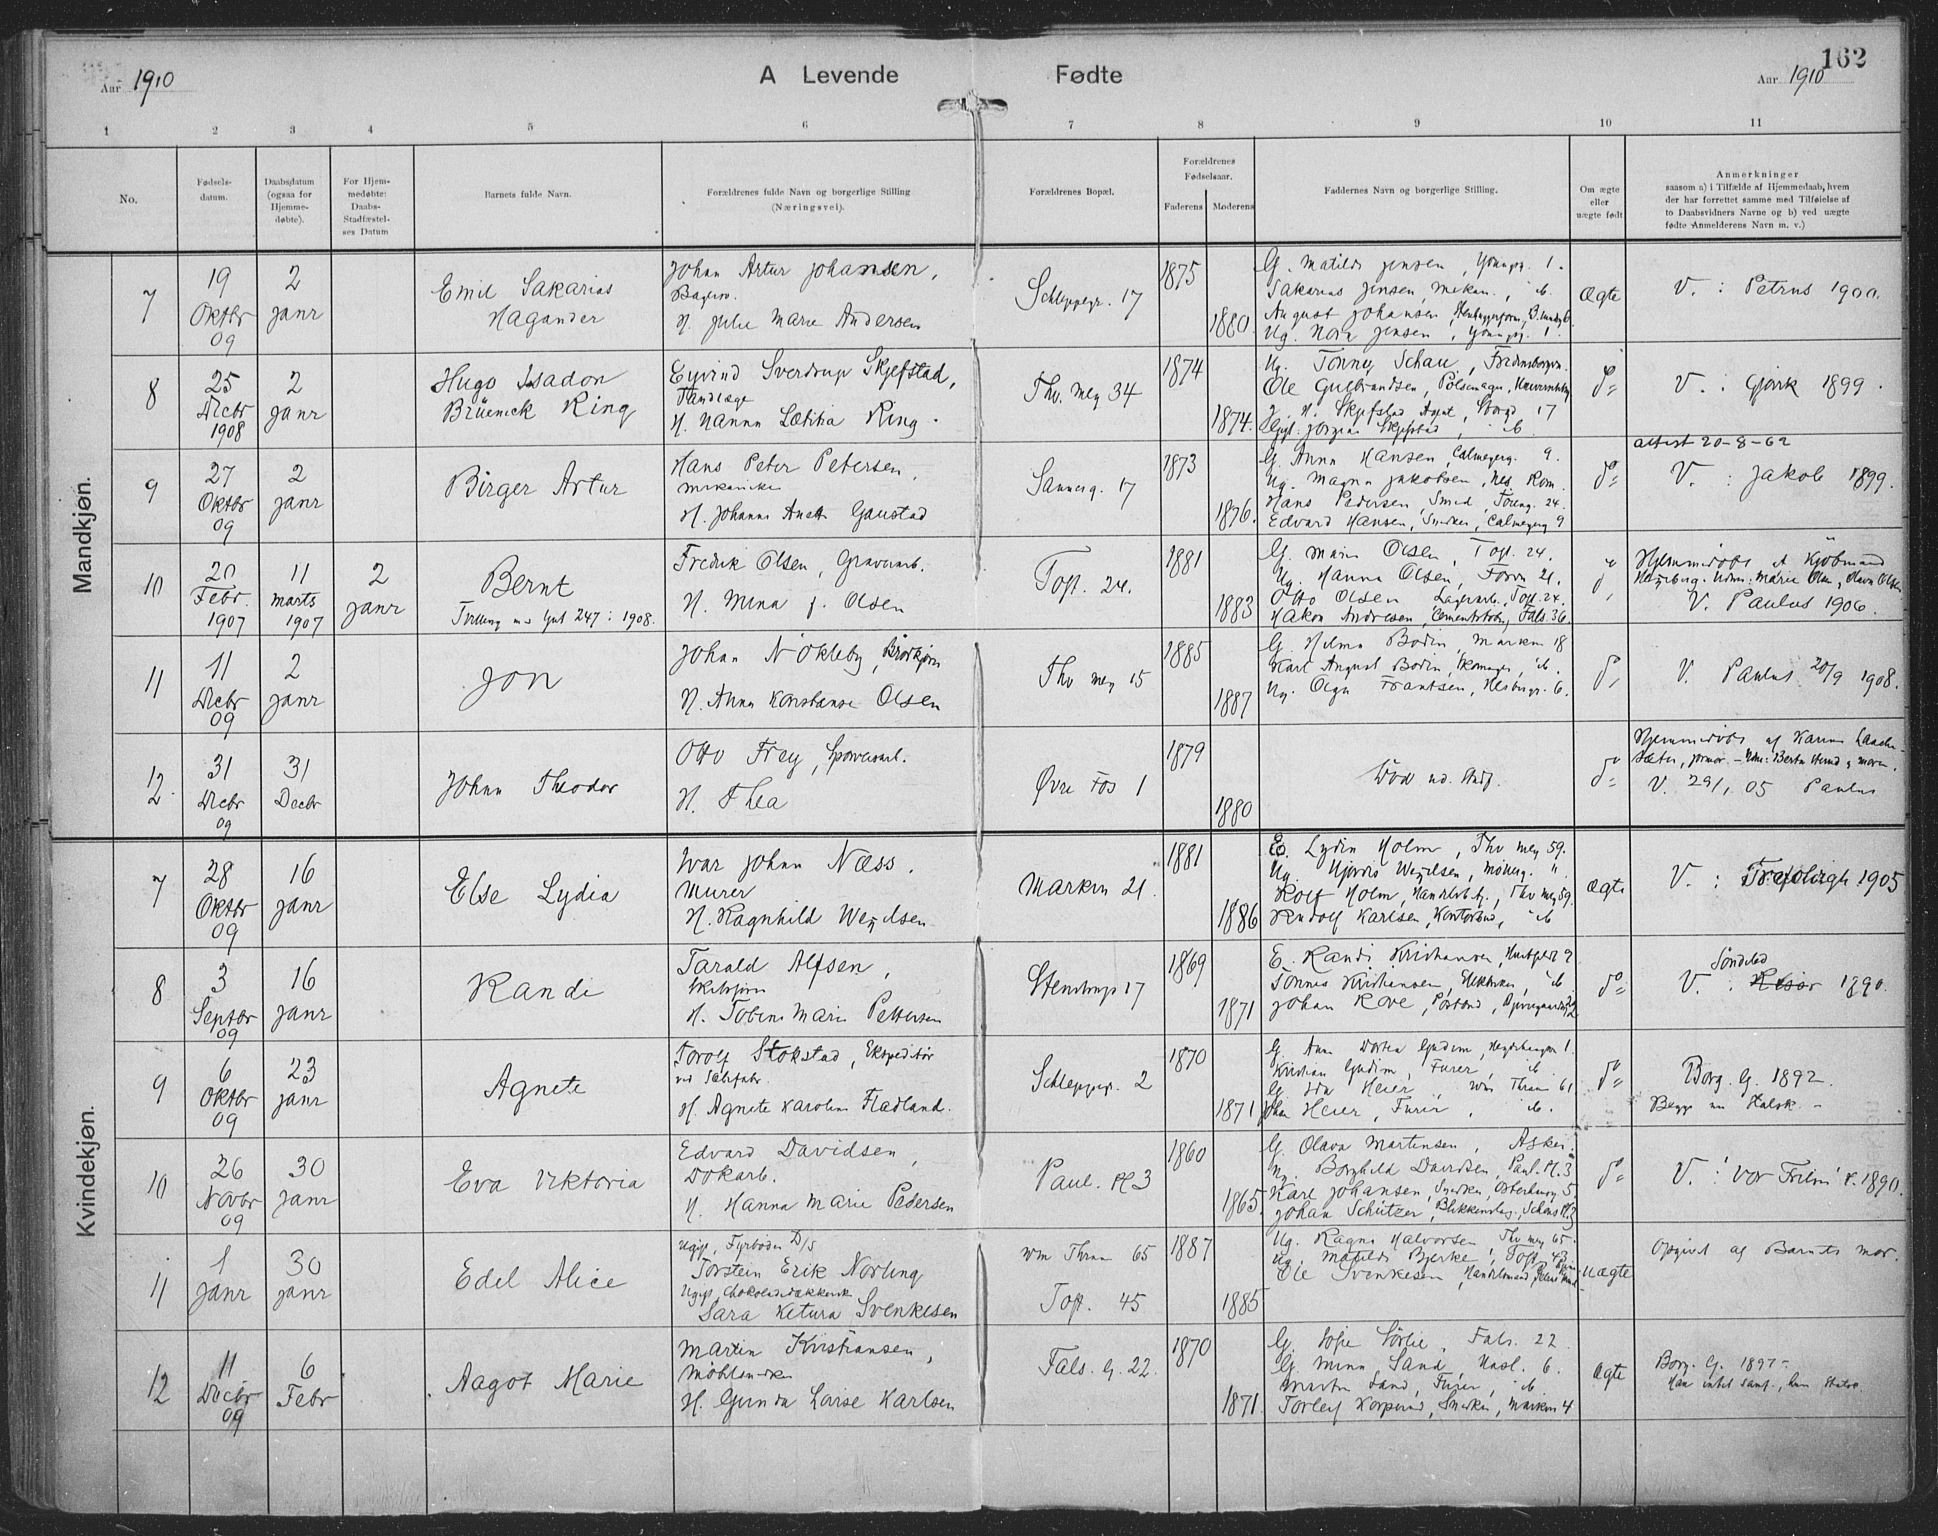 162
Aar 1910
A Levende Fødte
Aar 1910
1 2 3 4 5 6 7 8 9 10 11
No.
Fødsels-
datum.
Daabsdatum
(ogsaa for
Hjemme-
døbte).
For Hjem-
medøbte:
Daabs-
Stadfæstel-
ses Datum
Barnets fulde Navn.
Forældrenes fulde Navn og borgerlige Stilling
(Næringsvei).
Forældrenes Bopæl.
Forældrenes
Fødselsaar.
Faderens Moderens
Faddernes Navn og borgerlige Stilling.
Om ægte
eller
uægte født
Anmerkninger
saasom a) i Tilfælde af Hjemmedaab, hvem
der har forrettet samme med Tilføielse af
to Daabsvidners Navne og b) ved uægte
fødte Anmelderens Navn m. v.)
Mandkjøn.
7
19
Oktbr
09
2
janr
Emil Sakarias
Hagander
Johan Artur Johansen,
H. Julie Marie Andersen
Schleppegr. 17
1875
1880
G. Matilde Jensen, Youngsg. 1.
Sakarias Jensen, Mekan., ib.
August Johansen,
Ug. Nora Jensen, Youngsg. 1.
Ægte
V. : Petrus 1900.
8
25
Decbr
1908
2
janr
Hugo Isadon
Brüenick Ring
Eyvind Sverdrup Skjefstad,
Tandlæge
H. Nanna Lætitia Ring.
Thv. Mey 34
1874
1874.
Ug. Tonny Schau, Fredensborgvn.
Ole Gulbrandsen, Pølsemager,
H. Skjefstad Agent, Storgd 17
Skjefstad, ib.
do
V. : Gjøvik 1899.
9
27
Oktbr
09
2
janr
Birger Artur
Hans Peter Petersen,
Mekaniker
H. Johanne Anette Gaustad
Sannerg. 17
1873
1876.
G. Anna Hansen, Calmeyerg. 9.
Ug. Magna Jakobsen, Nes, Rom.
Hans Pedersen, Smed, Toieng. 24.
Edvard Hansen, Snedker, Calmeyerg 9
do
attest 20-8-62
V. : Jakob 1899.
10
20
Febr.
1907
11
Marts
1907
2
janr
Bernt
Tvilling m. Gut 247 : 1908.
Fredrik Olsen, Gravearb.
H. Mina f. Olsen
Toft. 24.
1881
1883
G. Marie Olsen, Toft. 24.
Ug. Hanna Olsen, Forvn 21.
Otto Olsen Lagerarb., Toft. 24.
Hakon Andresen, Cementstøber, Fals. 36.
do
Hjemmedøbt af Kjøbmand
Heyerberg. Vidn: Marie Olsen, Olava Olsen
V. Paulus 1906.
11
11
Decbr
09
2
janr
Jon
Johan Nökleby, Brødkjører
H. Anna Konstanse Olsen
Thv Mey 15
1885
1887
G. Helma Bodin, Markvn 18
Karl August Bodin, Skomager, ib.
Ug. Olga Frantsen, Hesbergs. 6.
do
V. Paulus 20/9 1908.
12.
31
Decbr
09
31
Decbr
Johan Theodor
Otto Frey, Sporveisarb.
H. Thea
Øvre Fos 1
1879
1880
Död ud. Stadf.
do
Hjemmedøbt af Karen
Sæter, jormor. - Vidn: Berta Hund & moren.
V. 29/1 05 Paulus
Kvindekjøn.
7
28
Oktbr
09
16
janr
Else Lydia
Ivar Johan Næss.
Murer
H. Ragnhild Weydsen
Markvn 21.
1881
1886
E. Lydia Holm, Thv Mey 59.
Ug. Hjørdis Weydsen, Mølleng. "
Rolf Holm, Handelsbetj., Thv Mey 59.
Rudolf Karlsen, Kontorbud, ib
Ægte
V. : Trefoldigh 1905
8
3
Septbr
09
16
janr
Randi
Tarald Alfsen,
Skibsfører
H. Tobine Marie Pettersen
Stenstrups 17
1869
1871
E. Randi Kristiansen, Huitfeldt 9
Tønnes Kristiansen, Elektriker, ib.
Johan Rove, Postbud,
do
Söndeled
V. : Risør 1890.
9
6
Oktbr
09
23
janr
Agnete
Torolf Stokstad, Ekspeditør
ved Sæbefabr.
H. Agnete Karoline Fladland.
Schleppegr. 2
1870
1871
G. Anna Dortea Gjudem, Heyerdahlsgsn 1.
Kristian Gjudem, Furer, ib.
G. Ida Heier, Wm Thran 61
Heier, Furir, ib.
do
Borg. G. 1892.
Begge un Statsk. -
10
26
Novbr
09
30
janr
Eva Viktoria
Edvard Davidsen,
Dokarb.
H. Hanna Marie Pedersen
Paul. Pl 3
1860
1865.
G. Olava Martinsen, Asker.
Ug. Borghild Davidsen, Paul. Pl. 3
Karl Johansen, Snedker, Osterhausg 5
Johan Schützer, Blikkenslag., Schous Pl. 7
do
V. : Vor Frelser K. 1890.
11
1
janr
30
janr
Edel Alice
Ugift, Fyrböder D/S
Torstein Erik Norling
Ugift, Chokoladepakkerske
Sara Ketura Svenkesen
Wm Thran 65
Toft. 45
1887
1885
Ug. Ragna Halvorsen Thv Mey 65.
Ug. Matilde Bjerke, Toft. 43
Ole Svenkesen, Handelsmand,
Uægte
Opgivet af Barnets Mor.
12
11
Decbr
09
6
Febr
Aagot Marie
Martin Kristiansen,
Møbelsnedker
H. Gunda Lovise Karlsen
Fals. G. 22.
1870
1871.
G. Sofie Sörlie, Fals. 22
G. Minna Sand, Hasl. 6.
Martin Sand, Furer, ib.
Torleif Korperud, Snedker, Markvn 4
Ægte
Borg. G. 1897 -
Han intet Samf., hun Statsk.